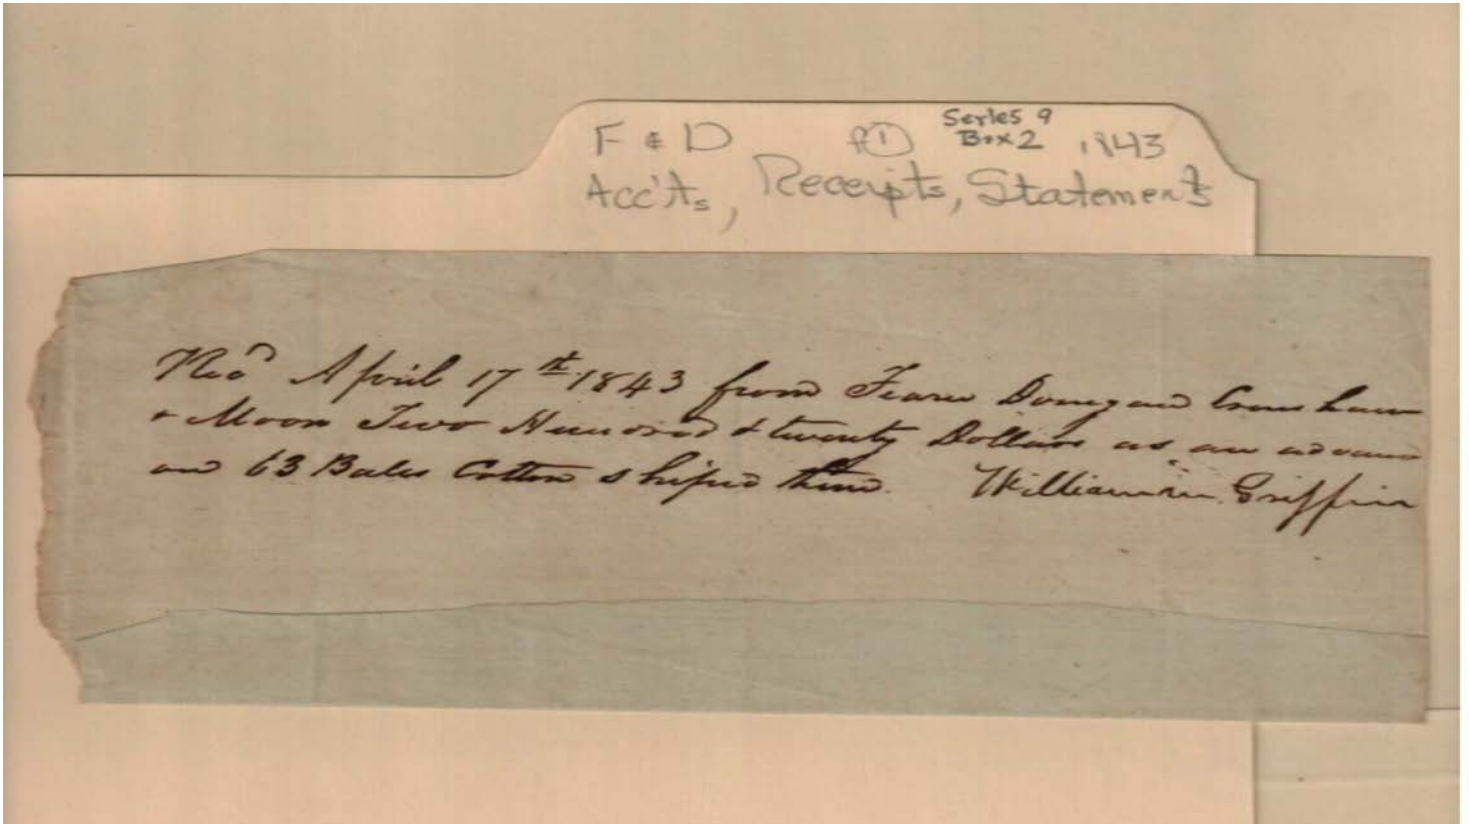 F & D ① Series 9
Box 2 1843
Acc'ts, Receipts, Statements
Recd April 17th 1843 from Fearn Donegan Crenshaw
& Moon Two Hundred & twenty Dollars as an advance
on 63 Bales Cotton shiped them. William Griffin